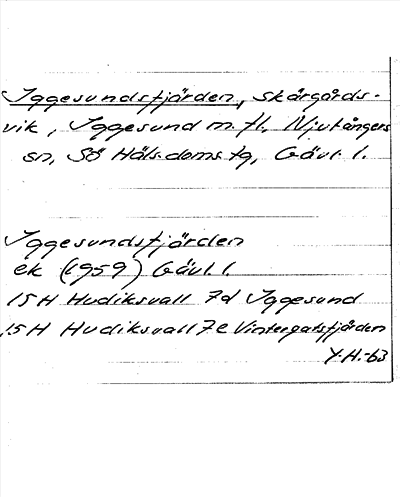 Iggesundsfjärden, skärgårds-
vik, Iggesund m.fl., Njutångers
sn, Sö Häls. doms. tg, Gävl. l.
Iggesundsfjärden
ek (1959) Gävl. l.
15H Hudiksvall 7d Iggesund
15H Hudiksvall 7e Vintergatsfjärden
Y.H.-63